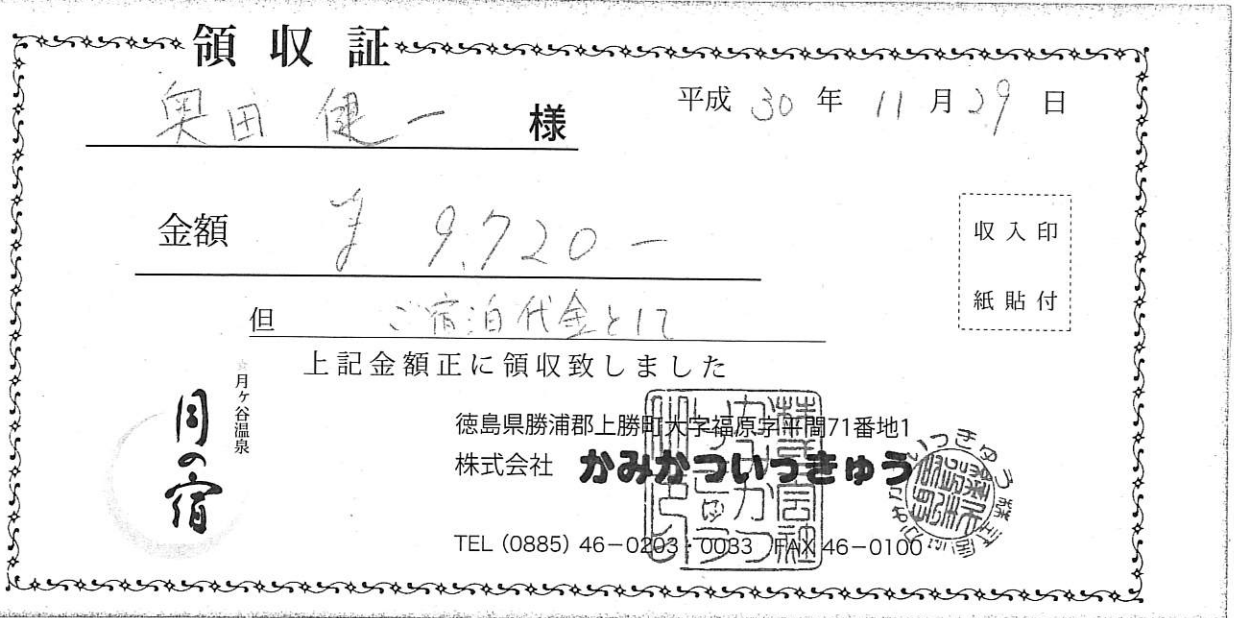 領収証
奥田 健一 様
平成 30 年 11 月 29 日
金額 ¥ 9,720-
収入印
紙貼付
但 ご宿泊代金として
上記金額正に領収致しました
☆月ヶ谷温泉
月の宿
徳島県勝浦郡上勝町大字福原字平間71番地1
株式会社 かみかついっきゅう
TEL (0885) 46-0203・0033 FAX 46-0100